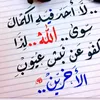 لا أحد فيه الكمال
سوى .. الله .. لذا
عن نبش عيوب
الآخرين ..